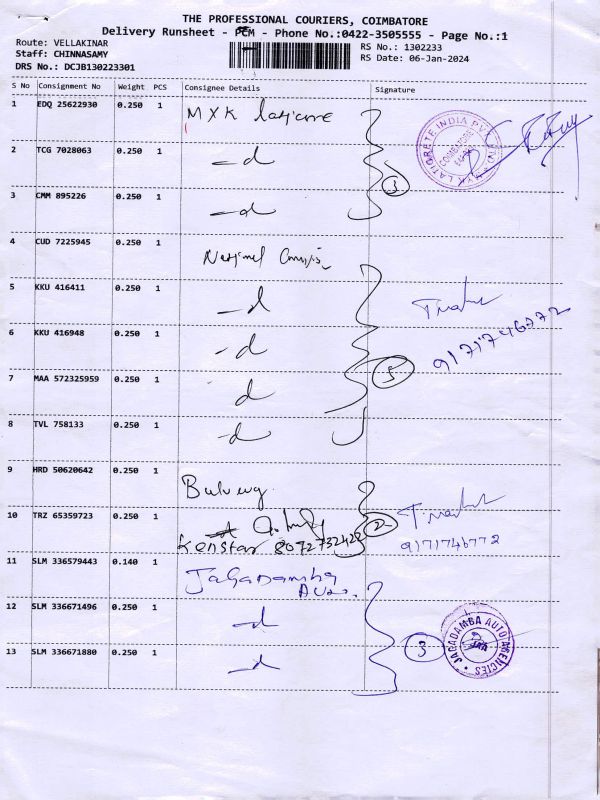 THE PROFESSIONAL COURIERS, COIMBATORE
Delivery Runsheet - PCM - Phone No.:0422-3505555 - Page No.:1
Route: VELLAKINAR
Staff: CHINNASAMY
DRS No.: DCJB130223301
RS No.: 1302233
RS Date: 06-Jan-2024
S No Consignment No Weight PCS Consignee Details Signature
1 EDQ 25622930 0.250 1 MYK Laticrete
2 TCG 7028063 0.250 1 -d
3 CMM 895226 0.250 1 -d
3
4 CUD 7225945 0.250 1 National
5 KKU 416411 0.250 1 -d
6 KKU 416948 0.250 1 -d
7 MAA 572325959 0.250 1 d
8 TVL 758133 0.250 1 -d
5
9 HRD 50620642 0.250 1
10 TRZ 65359723 0.250 1
Kenstar
2
9171746772
11 SLM 336579443 0.140 1 Jagadamba Auto.
12 SLM 336671496 0.250 1 -d
13 SLM 336671880 0.250 1 -d
3
JAGADAMBA AUTO AGENCIES
JAA